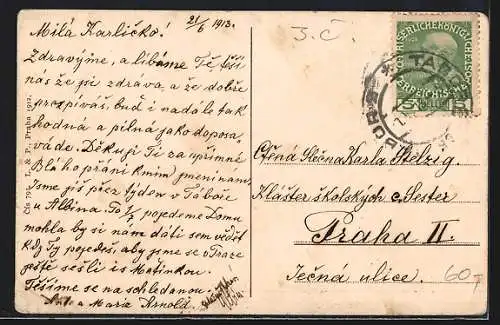 21/6 1913.
Milá Karličko!
Zdravýme, a líbáme Tě, těší
nás že jsi zdráva, a že dobře
prospíváš, buď i nadále tak
hodná a pilná jako doposa-
váde. Děkuji Ti za upřímné
Bláhopřání k mým jmeninám,
Jsme již přez týden v Táboře
u Albína. To 1/7 pojedeme Domu
mohla by si nám dáti sem vědět
kdy Ty pojedeš, aby jsme se v Praze
ještě sešli is Matinkou.
Těšíme se na shledanou.
a Marie Arnold
Čís 796. L. & P., Praha 1912.
3.Č.
KAISERLICHEKÖNIGLICHE
ÖSTERREICHISCHE
5 5
TÁBOR
Ctěná Slečna Karla Stelzig.
Klášter školských c. Sester
Praha II.
Ječná ulice.
60-